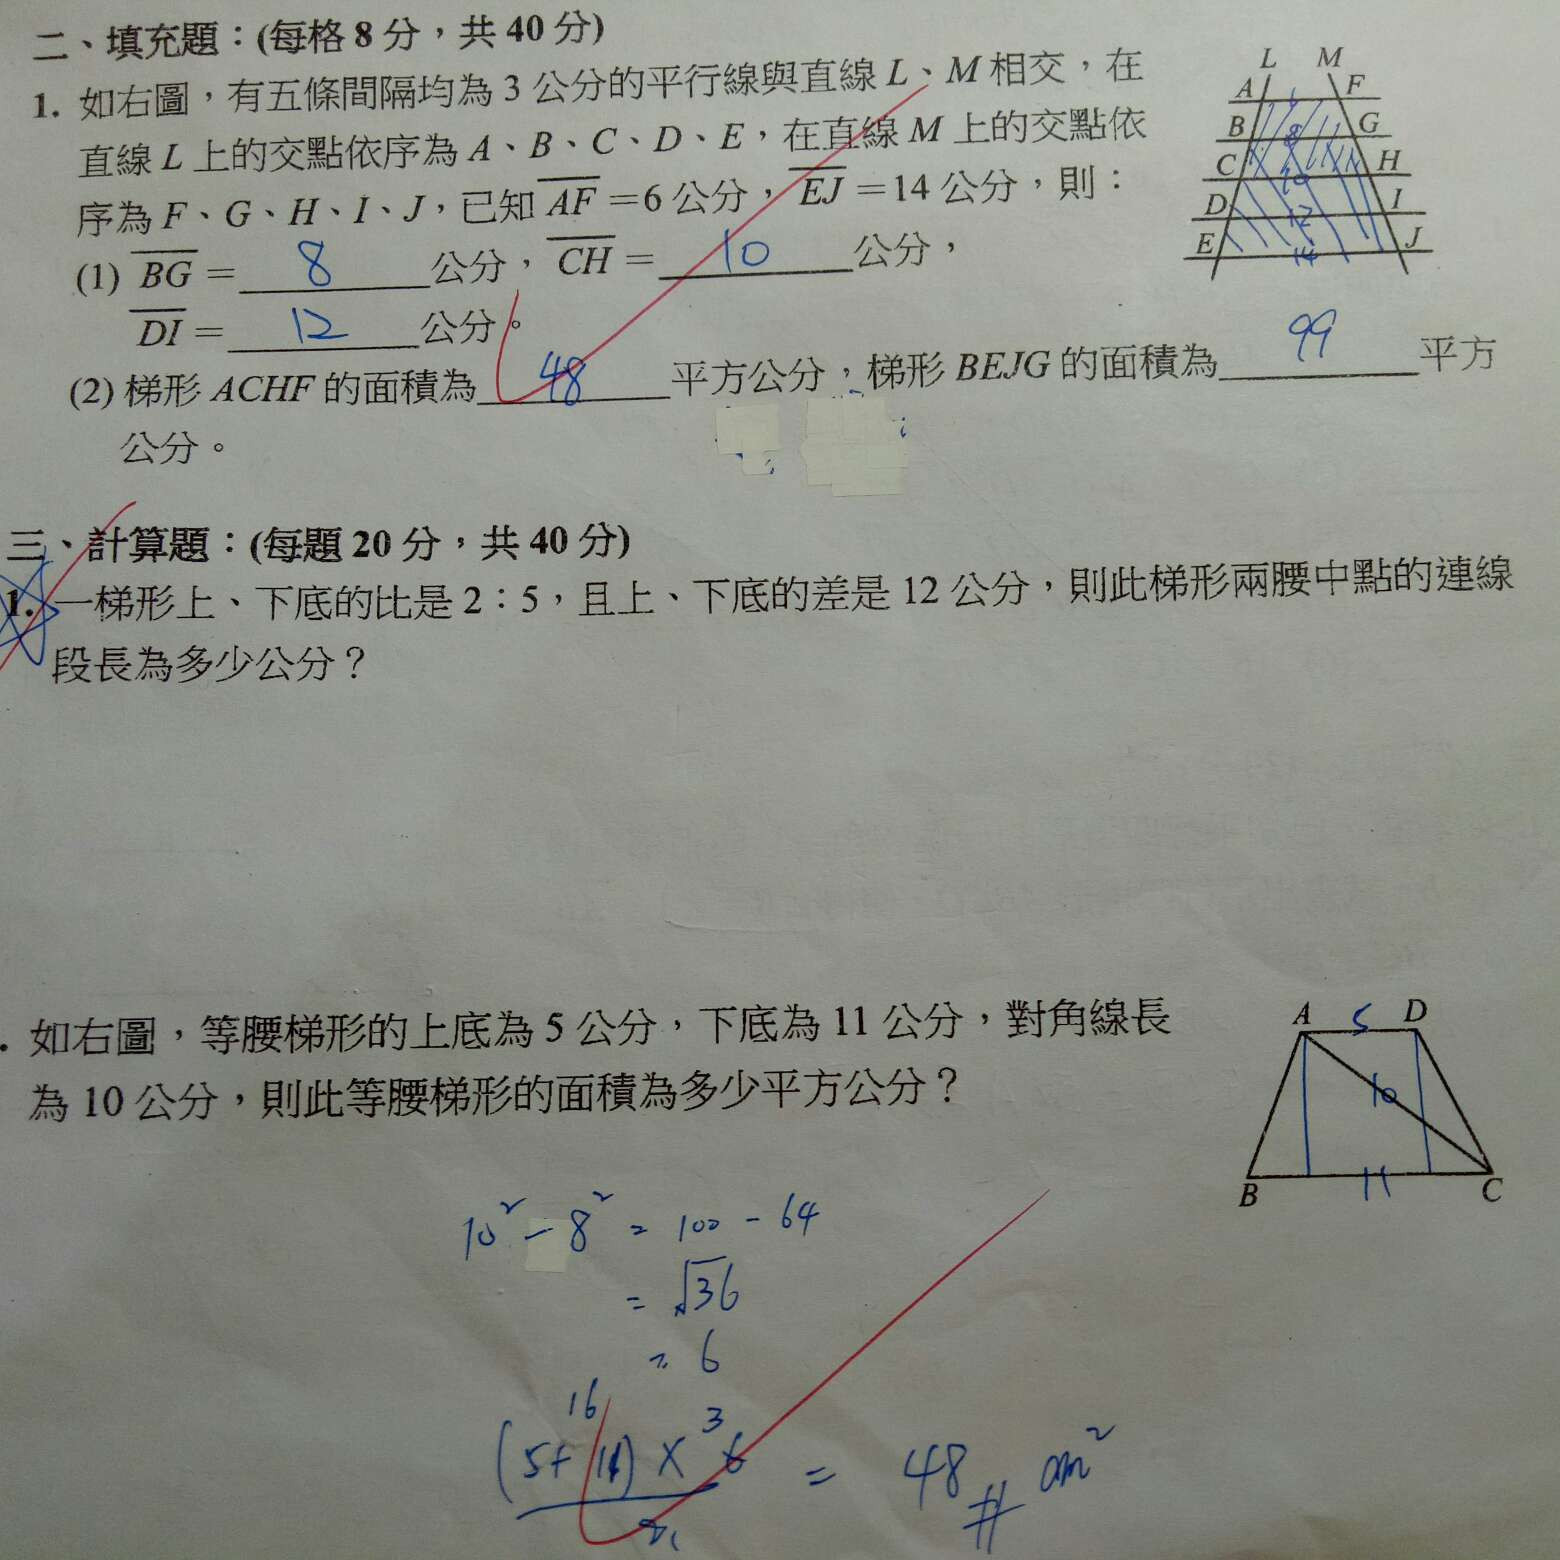 二、填充題：(每格 8 分，共 40 分)
1. 如右圖，有五條間隔均為 3 公分的平行線與直線 L、M 相交，在
直線 L 上的交點依序為 A、B、C、D、E，在直線 M 上的交點依
序為 F、G、H、I、J，已知 AF =6 公分，EJ =14 公分，則：
(1) BG = 8 公分，CH = 10 公分，
DI = 12 公分。
(2) 梯形 ACHF 的面積為 48 平方公分，梯形 BEJG 的面積為 99 平方
公分。
L M
A 6 F
B 8 G
C 10 H
D 12 I
E 14 J
三、計算題：(每題 20 分，共 40 分)
1. 一梯形上、下底的比是 2：5，且上、下底的差是 12 公分，則此梯形兩腰中點的連線
段長為多少公分？
. 如右圖，等腰梯形的上底為 5 公分，下底為 11 公分，對角線長
為 10 公分，則此等腰梯形的面積為多少平方公分？
A 5 D
10
B 11 C
10² - 8² = 100 - 64
= √36
= 6
16 3
(5+11) × 6 = 48 # cm²
2 1